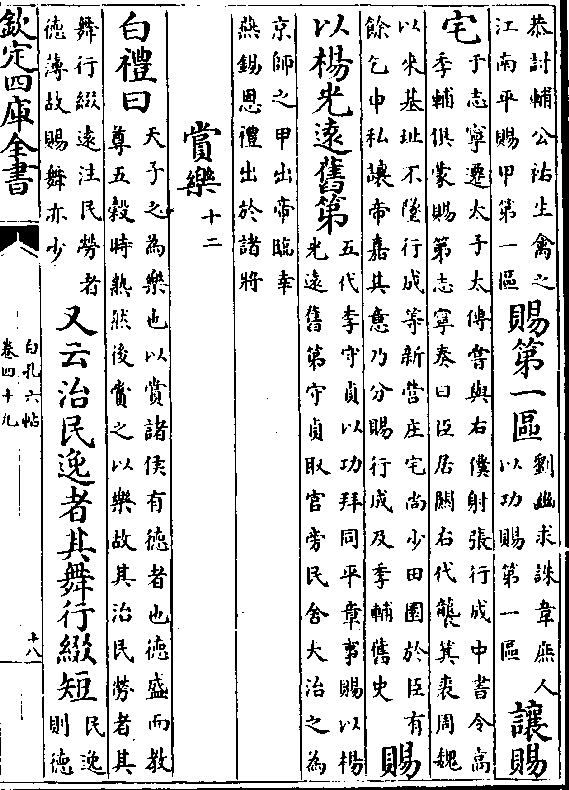 恭討輔公祏生禽之
江南平賜甲第一區
賜第一區
劉幽求誅韋庶人
以功賜第一區
讓賜
宅
于志寧遷太子太傅嘗與右僕射張行成中書令高
季輔俱蒙賜第志寧奏曰臣居關右代襲箕裘周魏
以來基址不墜行成等新營庄宅尚少田園於臣有
餘乞申私讓帝嘉其意乃分賜行成及季輔舊史
賜
以楊光遠舊第
五代李守貞以功拜同平章事賜以楊
光遠舊第守貞取官旁民舍大治之為
京師之甲出帝臨幸
燕錫恩禮出於諸將
賞樂十二
白禮曰
天子之為樂也以賞諸侯有德者也德盛而教
尊五穀時熟然後賞之以樂故其治民勞者其
舞行綴遠注民勞者
德薄故賜舞亦少
又云治民逸者其舞行綴短
民逸
則德
欽定四庫全書
白孔六帖
卷四十九
十八